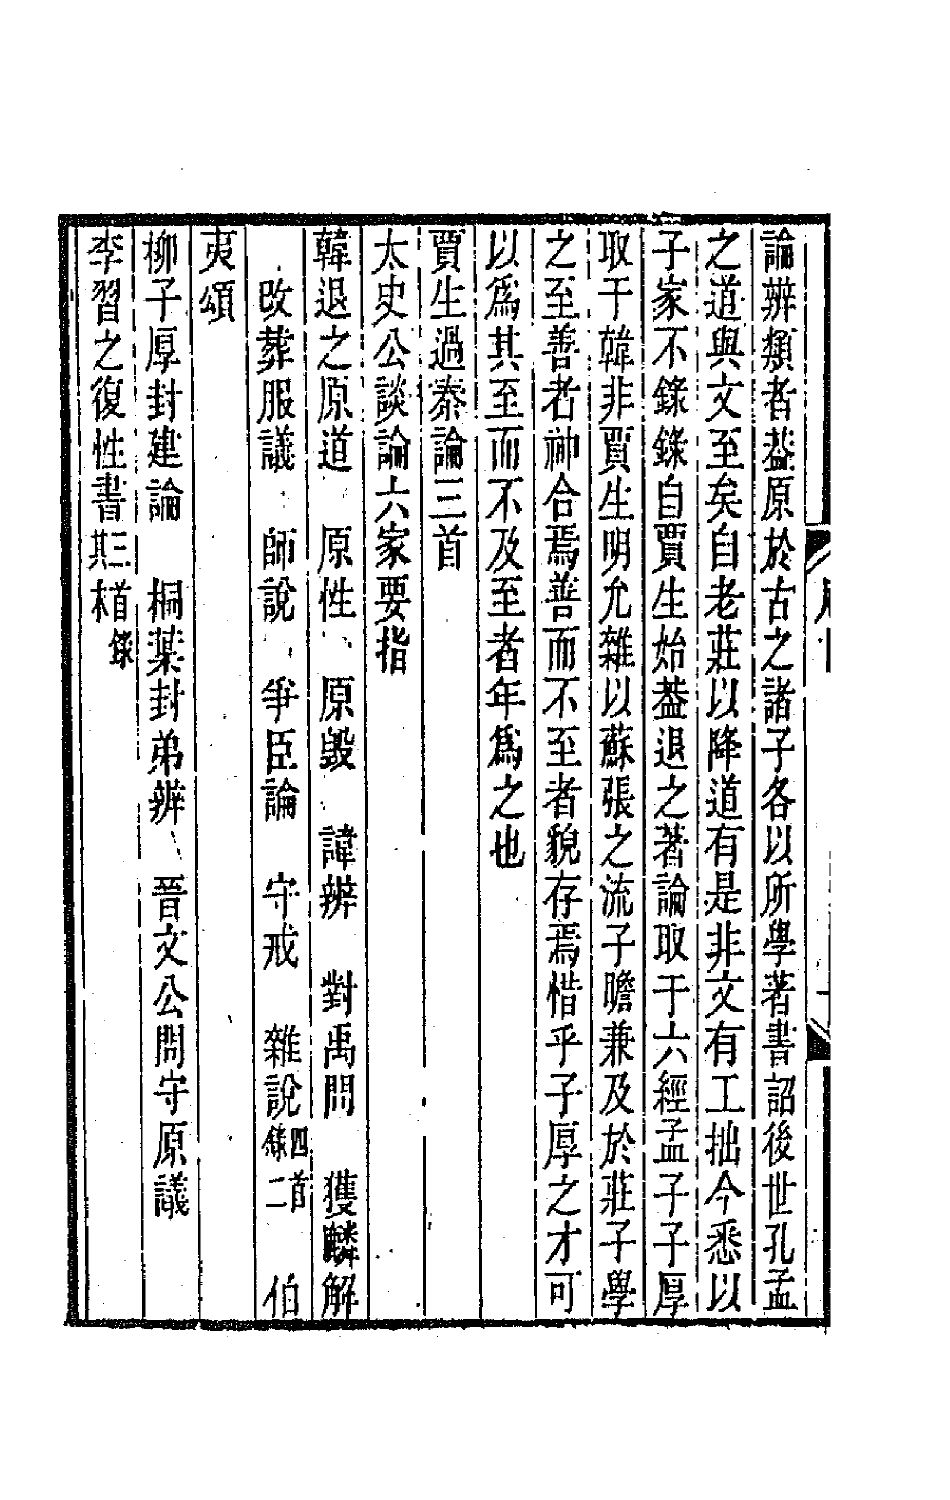 論辨類者葢原於古之諸子各以所學著書詔後世孔孟
之道與文至矣自老莊以降道有是非文有工拙今悉以
子家不錄錄自賈生始葢退之著論取于六經孟子子厚
取于韓非賈生明允雜以蘇張之流子瞻兼及於莊子學
之至善者神合焉善而不至者貌存焉惜乎子厚之才可
以爲其至而不及至者年爲之也
賈生過秦論三首
太史公談論六家要指
韓退之原道　原性　原毀　諱辨　對禹問　獲麟解
改葬服議　師說　爭臣論　守戒　雜說四首錄二　伯
夷頌
柳子厚封建論　桐葉封弟辨　晉文公問守原議
李習之復性書三首錄其末